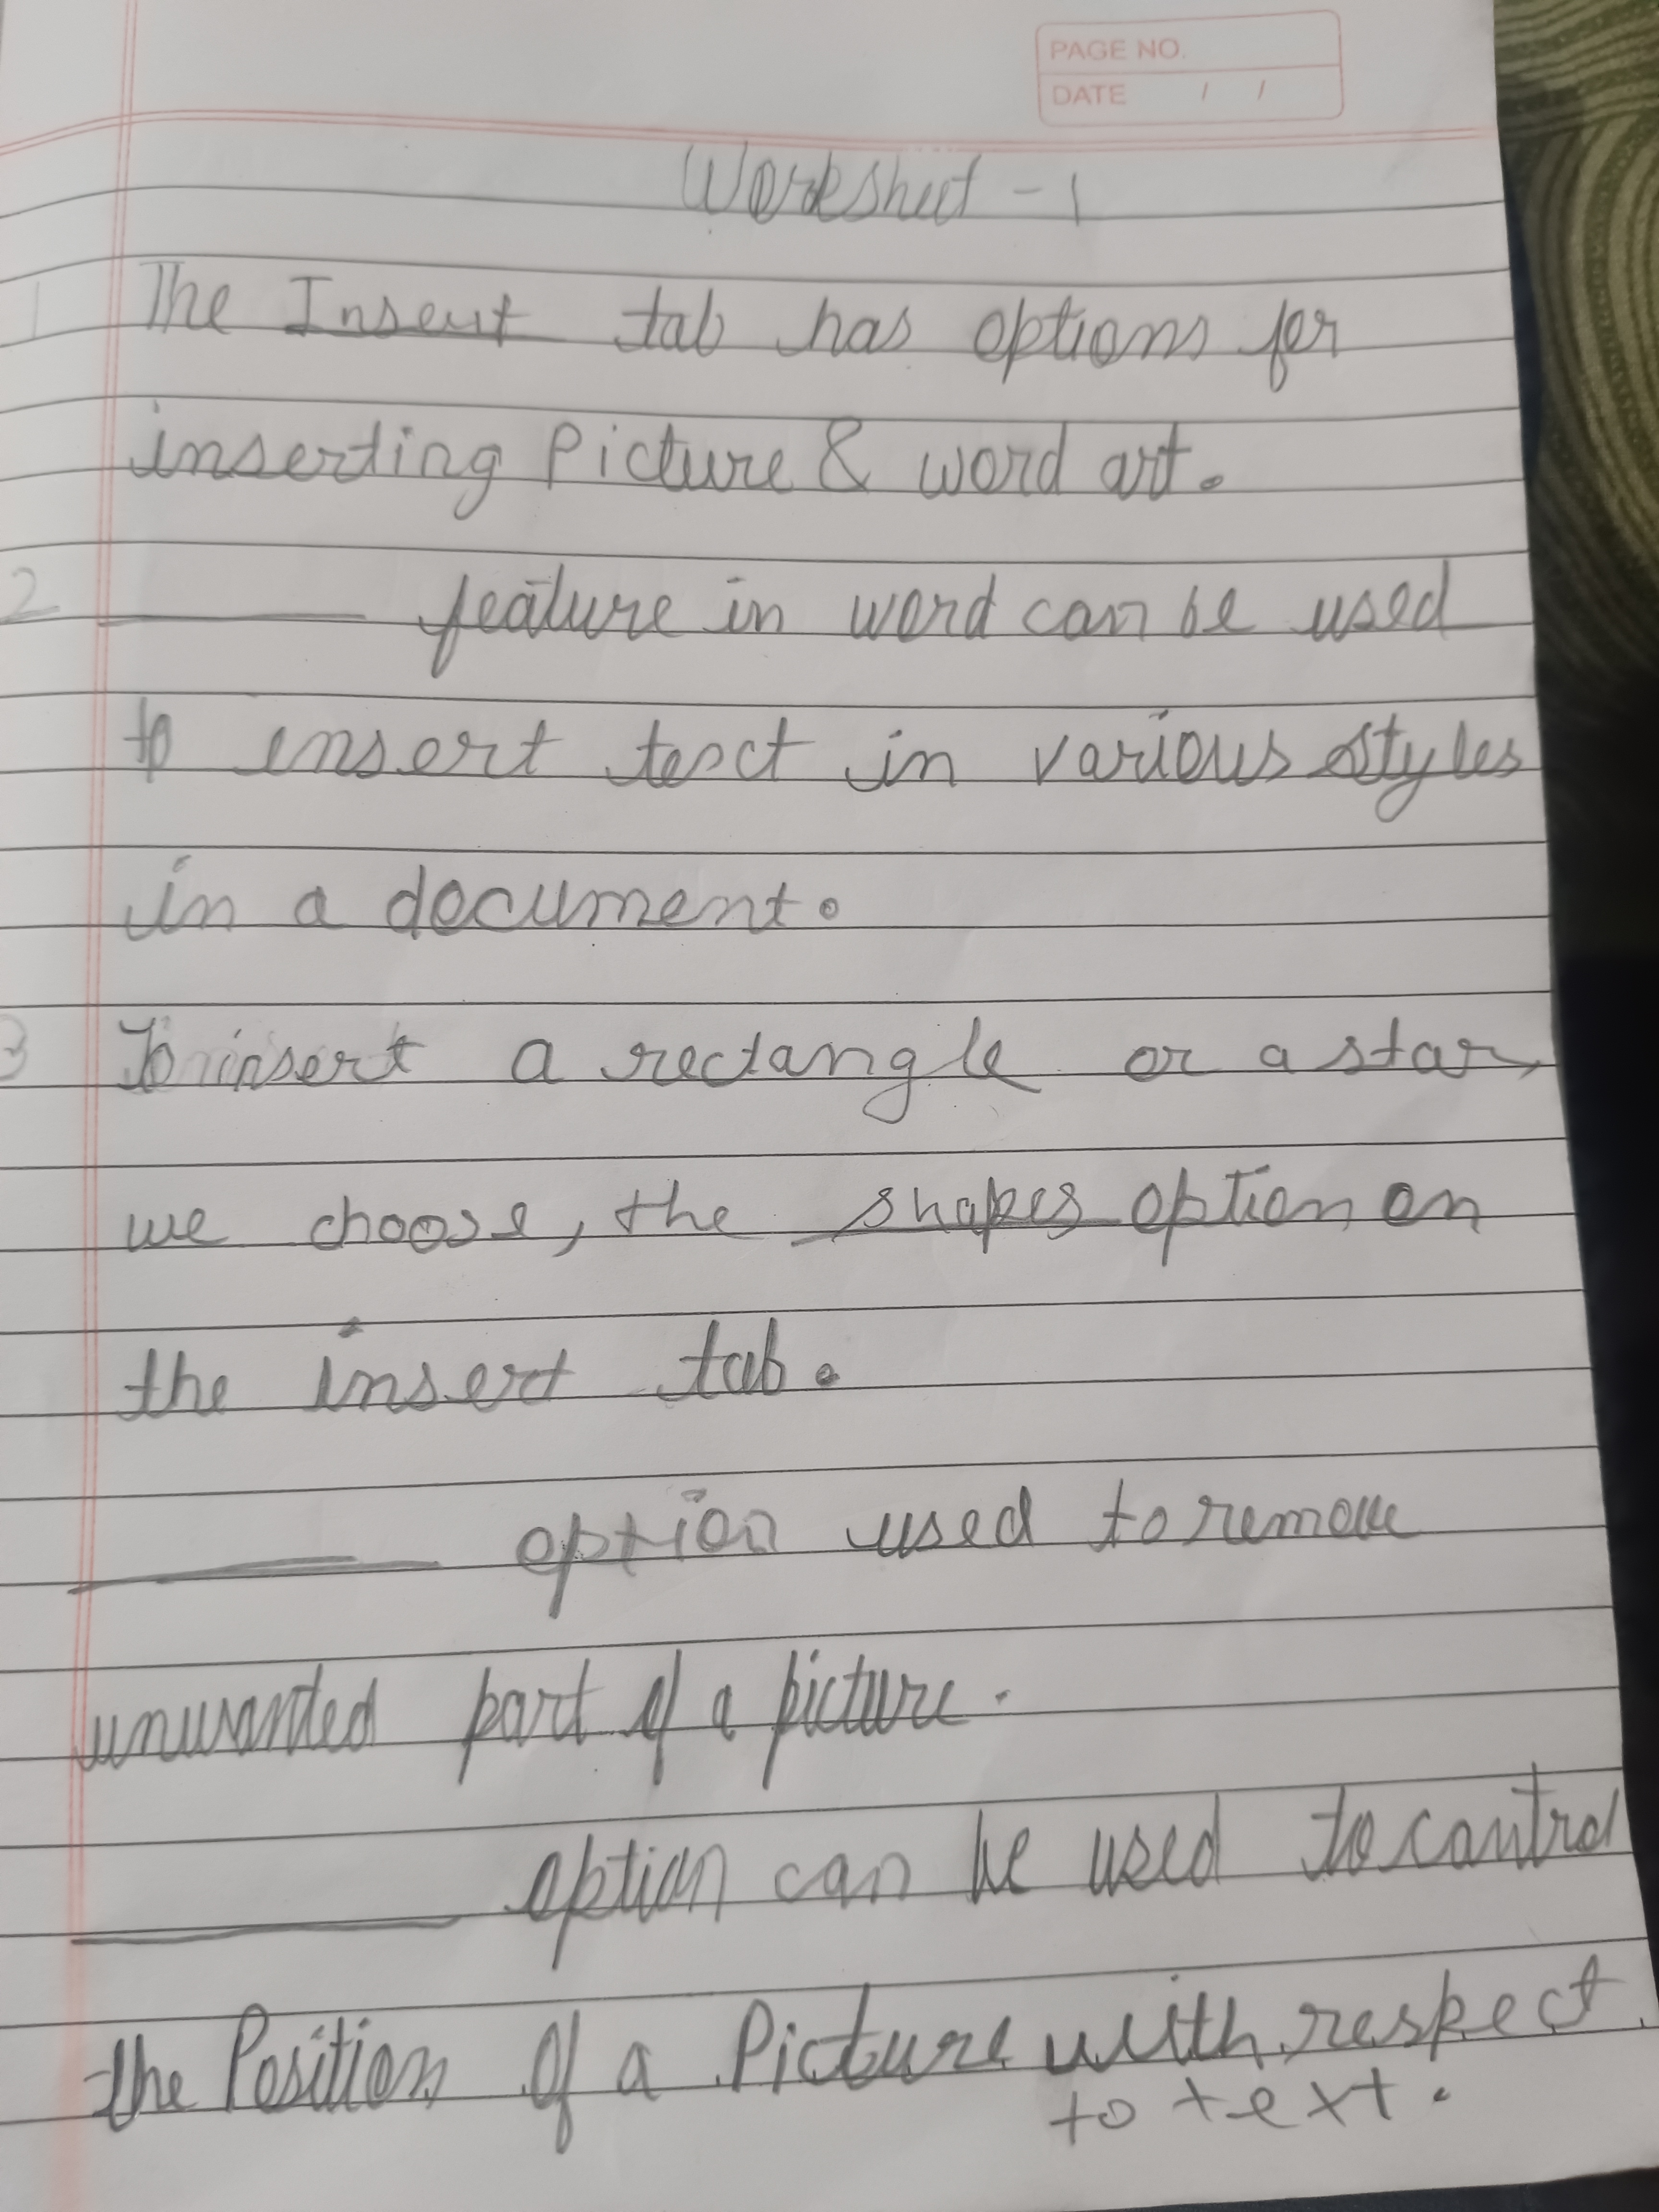 PAGE NO.
DATE / /
Worksheet - 1
1 The Insert tab has options for
inserting Picture & word art.
2 ______ feature in word can be used
to insert text in various styles
in a document.
3 To insert a rectangle or a star,
we choose, the shapes option on
the insert tab.
______ option used to remove
unwanted part of a picture.
______ option can be used to control
the Position of a Picture with respect
to text.